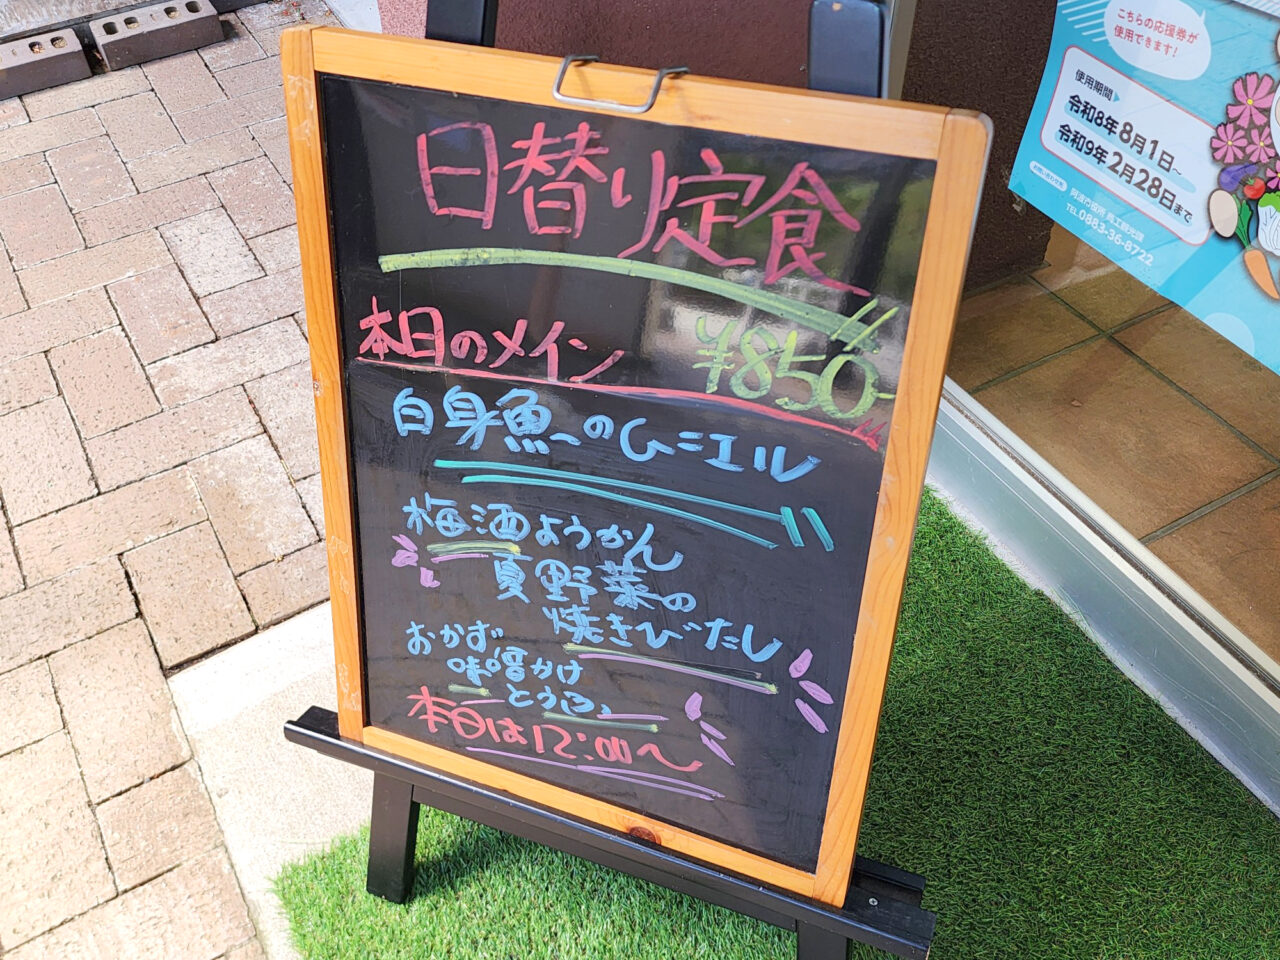 日替り定食
本日のメイン ¥850-
白身魚のムニエル
梅酒ようかん
夏野菜の
焼きびたし
おかず味噌かけ
とうふ、
本日は12:00〜
こちらの応援券が
使用できます!
使用期間
令和8年 8月1日~
令和9年 2月28日まで
お問い合わせ先
阿波市役所 商工観光課
TEL0883-36-8722